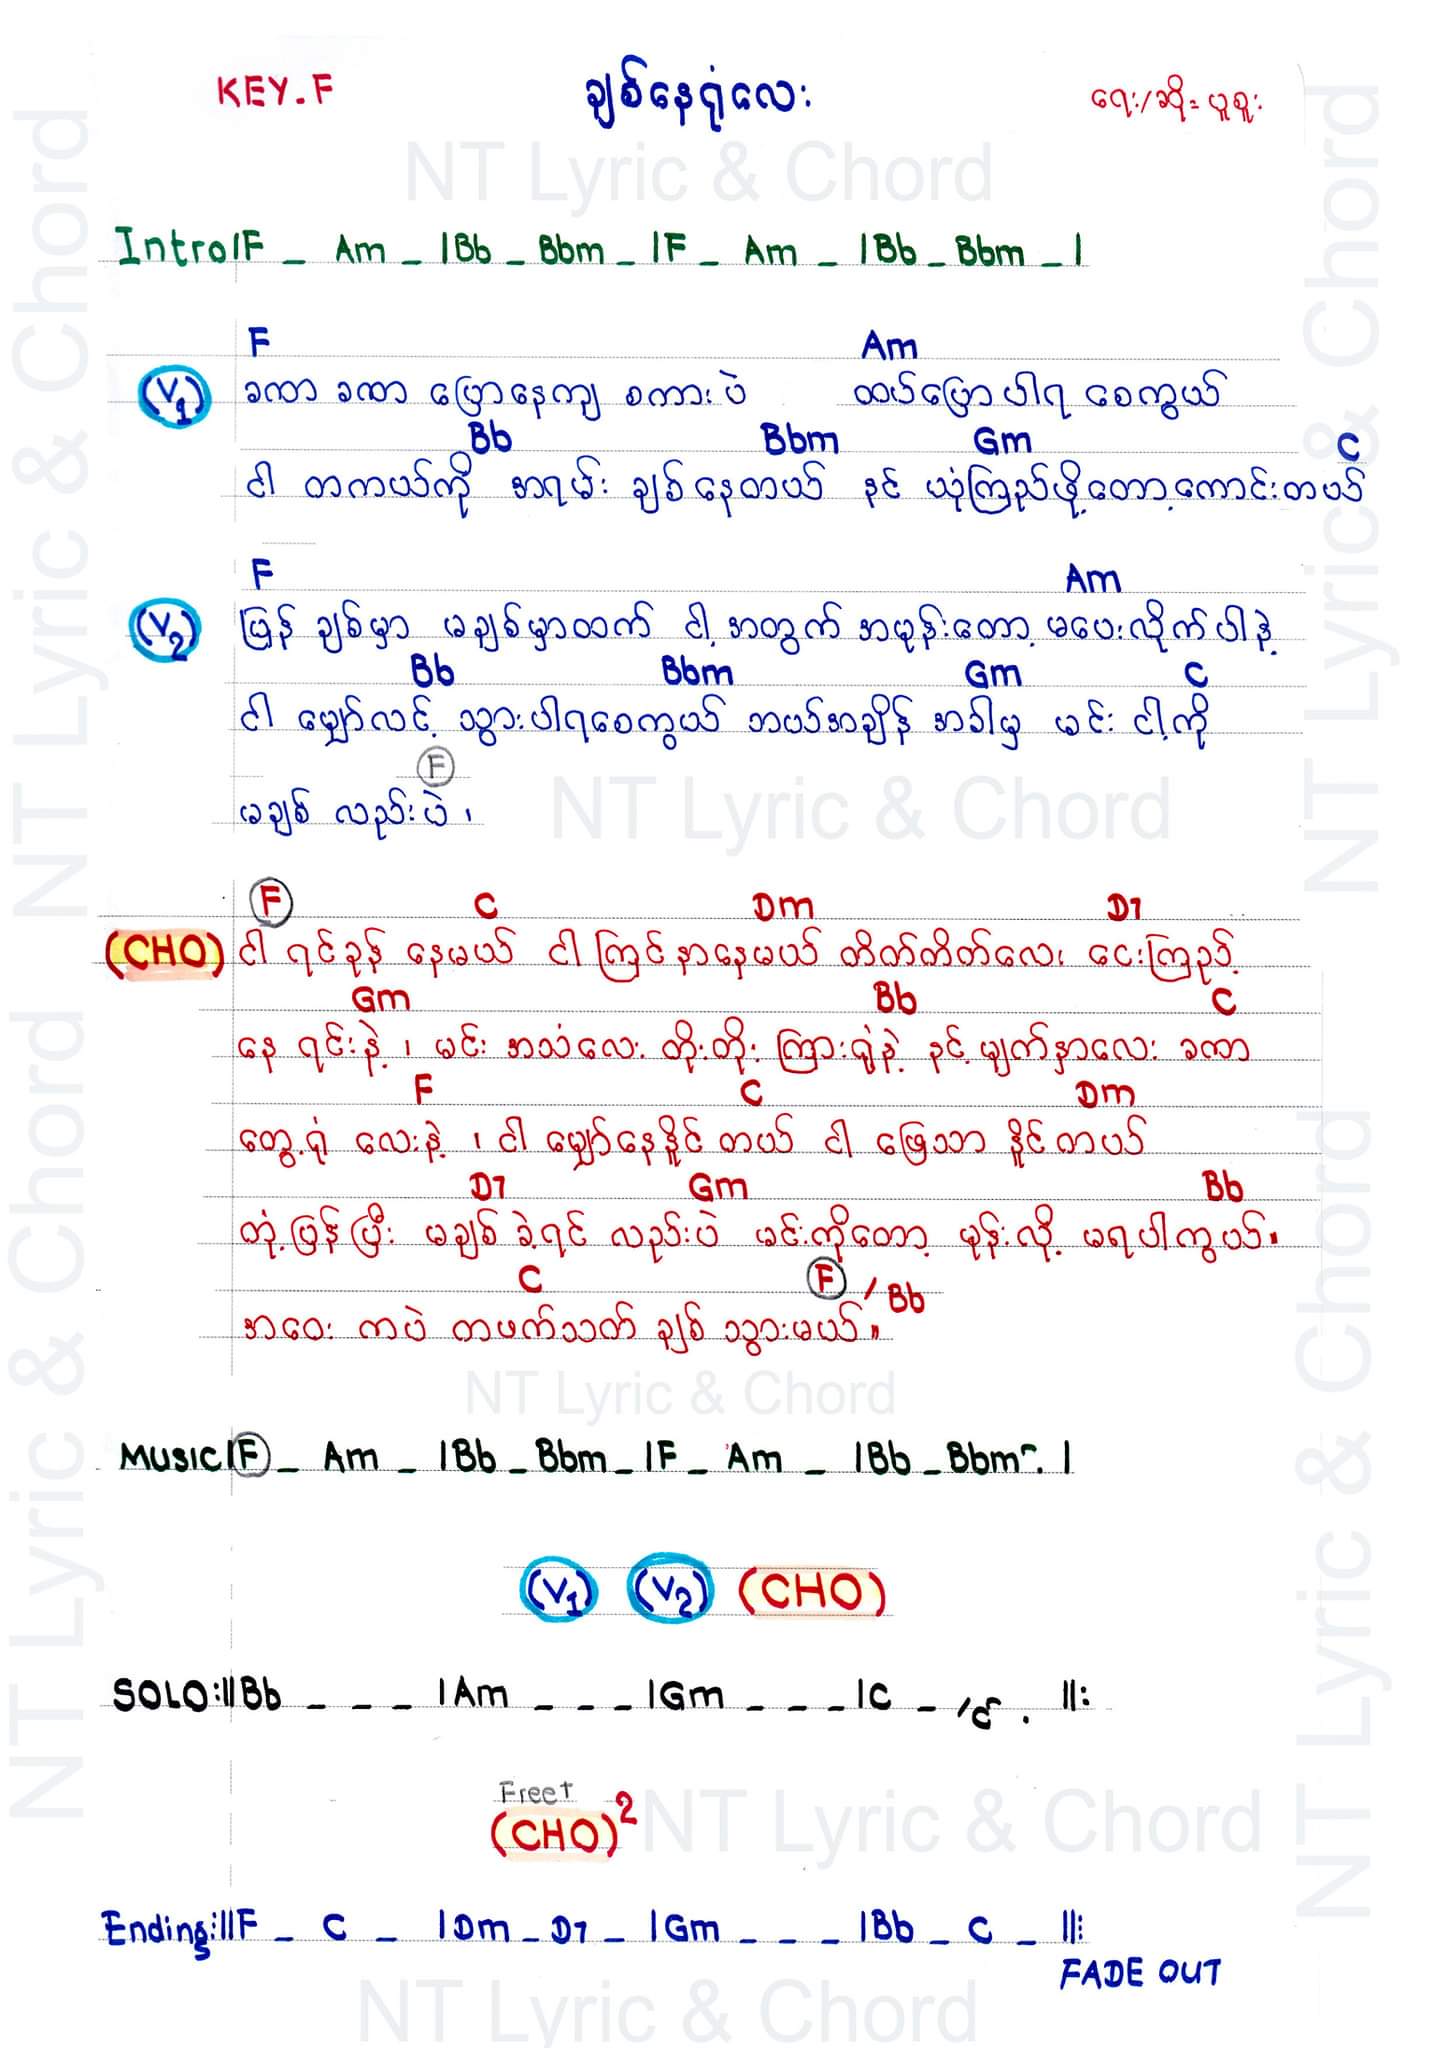 KEY.F
ချစ်နေရုံလေး
ရေး/ဆို = ယူစူး
NT Lyric & Chord
Intro|F _ Am _ |Bb _ Bbm _ |F _ Am _ |Bb _ Bbm _ |
F Am
(V1) ခဏာ ခဏာ ပြောနေကျ စကားပဲ ထပ်ပြောပါရ စေကွယ်
Bb Bbm Gm C
ငါ တကယ်ကို အရမ်း ချစ်နေတယ် နင် ယုံကြည်ဖို့တော့ကောင်းတယ်
F Am
(V2) ပြန် ချစ်မှာ မချစ်မှာထက် ငါ့ အတွက် အမုန်းတော့ မပေးလိုက်ပါနဲ့
Bb Bbm Gm C
ငါ မျှော်လင့် သွားပါရစေကွယ် ဘယ်အချိန် အခါမှ မင်း ငါ့ကို
F
မချစ် လည်းပဲ ၊
F C Dm D7
(CHO) ငါ ရင်ခုန် နေမယ် ငါ ကြင်နာနေမယ် တိတ်တိတ်လေး ငေးကြည့်
Gm Bb C
နေ ရင်းနဲ့ ၊ မင်း အသံလေး တိုးတိုး ကြားရုံနဲ့ နင့် မျက်နှာလေး ခဏာ
F C Dm
တွေ့ရုံ လေးနဲ့ ၊ ငါ မျှော်နေနိုင် တယ် ငါ ဖြေသာ နိုင်တယ်
D7 Gm Bb
တုံ့ပြန်ပြီး မချစ် ခဲ့ရင် လည်းပဲ မင်းကိုတော့ မုန်းလို့ မရပါကွယ်။
C F / Bb
အဝေး ကပဲ တဖက်သတ် ချစ် သွားမယ်။
NT Lyric & Chord
NT Lyric & Chord
MUSIC|F _ Am _ |Bb _ Bbm _ |F _ Am _ |Bb _ Bbm . |
(V1) (V2) (CHO)
SOLO:||Bb _ _ _ |Am _ _ _ |Gm _ _ _ |C _ /င် . ||:
Free↑
(CHO)2
NT Lyric & Chord
Ending:||F _ C _ |Dm _ D7 _ |Gm _ _ _ |Bb _ C _ ||:
FADE OUT
NT Lyric & Chord
NT Lyric & Chord
NT Lyric & Chord
NT Lyric & Chord
NT Lyric & Chord